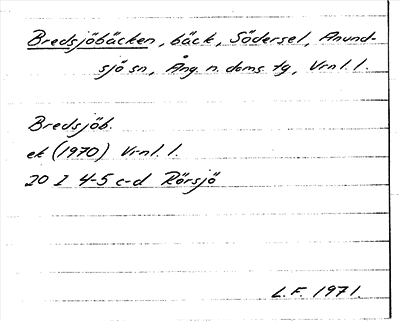 Bredsjöbäcken, bäck, Södersel, Anund-
sjö sn, Ång. n. doms. tg, Vrnl. l.
Bredsjöb.
ek (1970) Vrnl. l.
20 I 4-5 c-d Rörsjö
L.F. 1971.